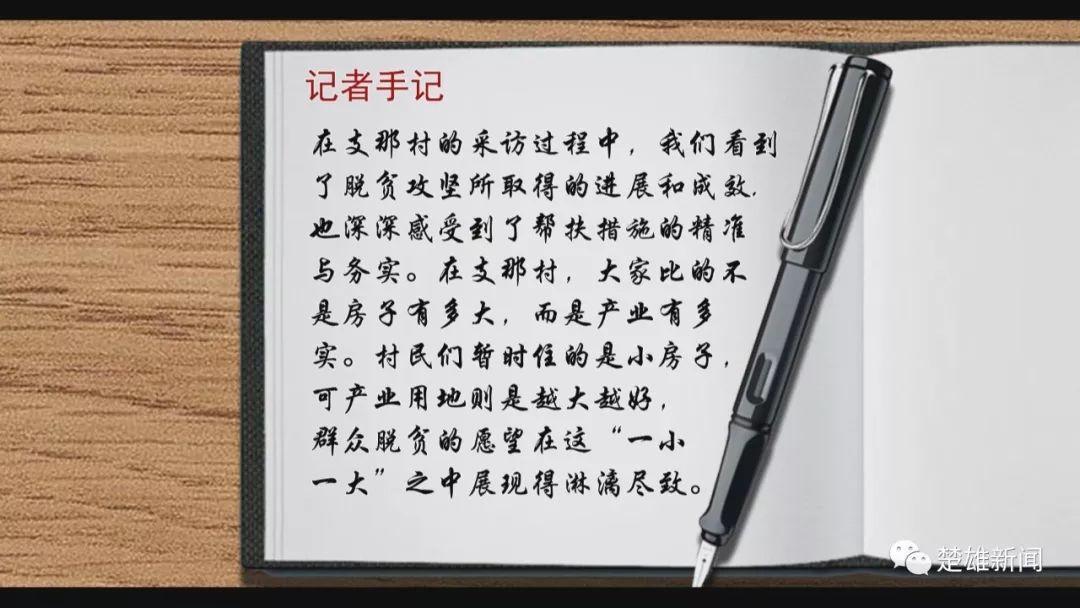 记者手记
在支那村的采访过程中，我们看到
了脱贫攻坚所取得的进展和成效，
也深深感受到了帮扶措施的精准
与务实。在支那村，大家比的不
是房子有多大，而是产业有多
实。村民们暂时住的是小房子，
可产业用地则是越大越好，
群众脱贫的愿望在这“一小
一大”之中展现得淋漓尽致。
楚雄新闻